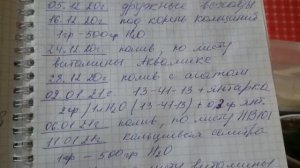 05.12.20г. дружные всходы
16.12.20г под корень кальций
1гр – 500гр H₂O
24.12.20г. полив, по листу
витамины Аквамикс
28.12.20г. полив с
02.01.21г 13-41-13 + янтарка
2гр/1л H₂O (13-41-13) + 0,2гр янт.
06.01.21г полив, по листу НВ101
11.01.21г. кальциевая селитра
1гр – 500гр H₂O
по листу витамины